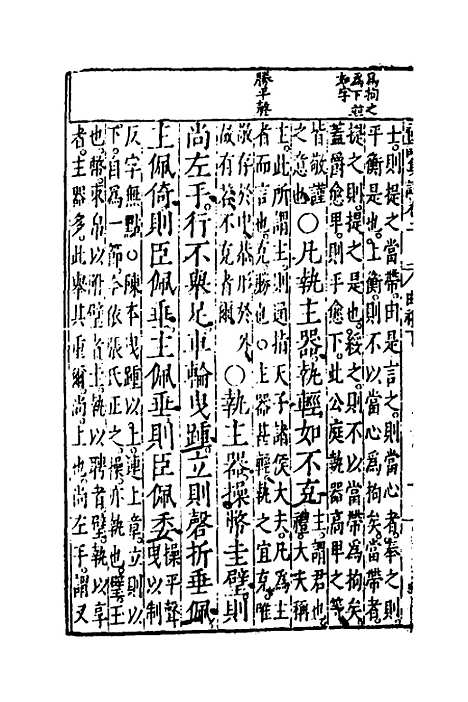 爲拘之
爲下並
如字
勝平聲
士則提之當帶由是言之則當心者奉之則
平衡是也上衡則不以當心爲拘矣當帶者
提之則提之是也綏之則不以當帶爲拘矣
蓋爵愈卑則手愈下此公庭執器高卑之等
皆敬謹
之意也○凡執主器執輕如不克
主謂君也
禮大夫稱
主此所謂主則通指天子諸侯大夫凡爲主
者而言也克勝也○主器甚輕執之宜克唯
敬存於中恭形於外
故有若不克者爾
○執主器操幣圭璧則
尚左手行不舉足車輪曳踵立則磬折垂佩
主佩倚則臣佩垂主佩垂則臣佩委
操平聲
曳以制
反字無點○陳本曳踵以上連上章立則以
下自爲一節今依張氏正之操亦執也璧玉
也幣束帛以附璧者圭執以聘者璧執以享
者主器多此舉其重爾尚上也尚左手謂又